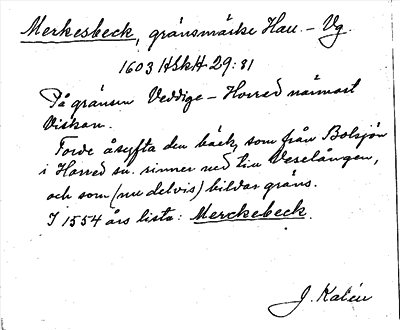 Merkesbeck, gränsmärke Hall. - Vg.
1603 HSkH 29:81
På gränsen Veddige - Horred närmast
Viskan.
Torde åsyfta den bäck, som från Bolsjön
i Horred sn. rinner ned till Veselången,
och som (nu delvis) bildar gräns.
I 1554 års lista: Merckebeck.
J. Kalén